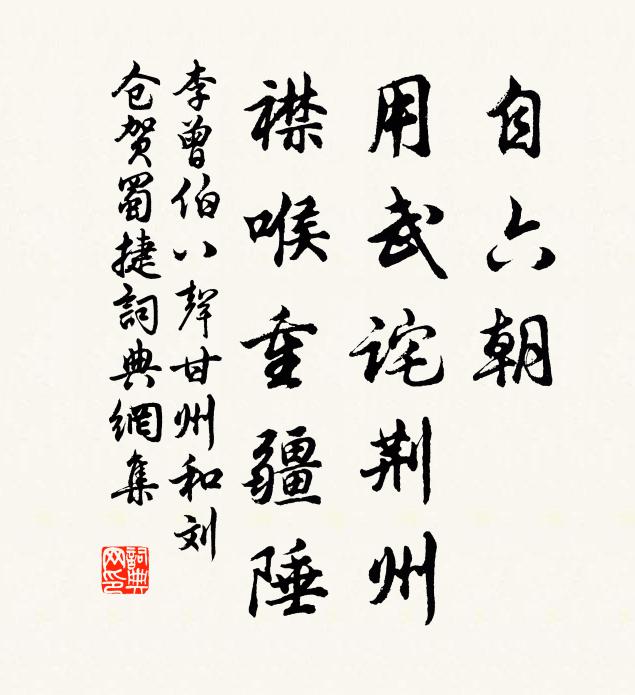 自六朝
用武诧荆州
襟喉重疆陲
李曾伯八聲甘州和刘
仓贺蜀捷詞典網集
詞典网印